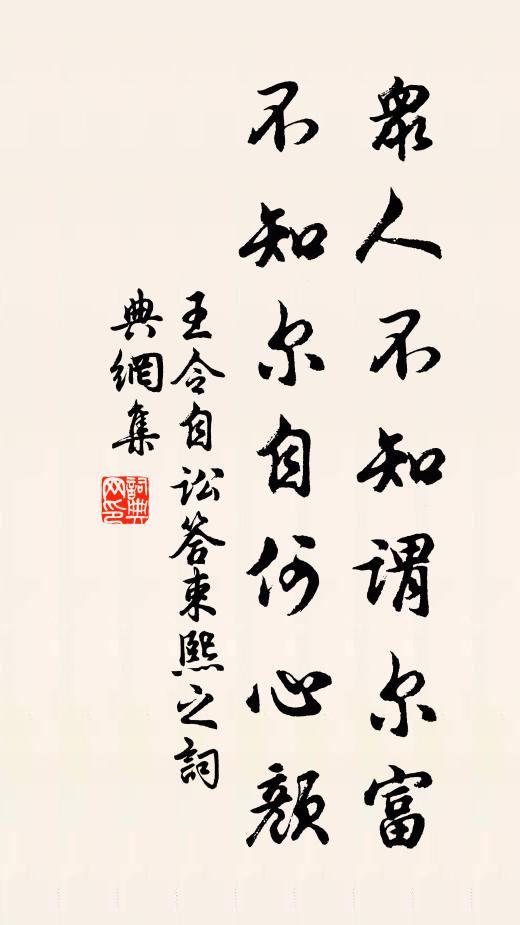 眾人不知謂尔富
不知尔自何心顏
王令自訟答束熙之詞
典網集
詞典
网印